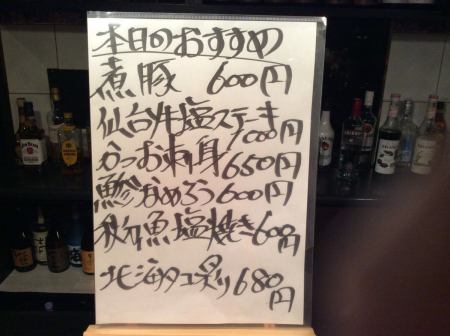 本日のおすすめ
煮豚 600円
仙台牛塩ステーキ
1000円
かつお刺身 650円
鯵なめろう 600円
秋刀魚塩焼き 600円
北海タコ炙り 680円
JIM BEAM